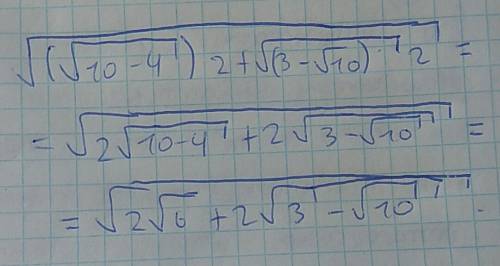 √((√(10-4)) 2 + √((3-√10)) 2) =
= √(2√(10-4) + 2√(3-√10)) =
= √(2√6 + 2√3 - √10).